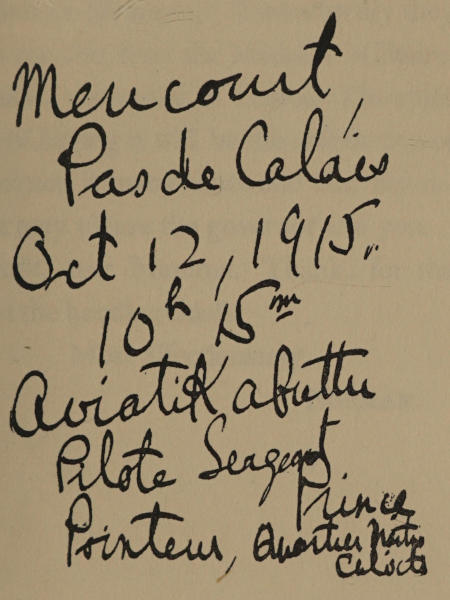 Mencourt,
Pas de Calais
Oct 12, 1915.
10h 15m
Aviatik abuttu
Pilote Seageant
Prince
Pointeur, Quartier Maitre